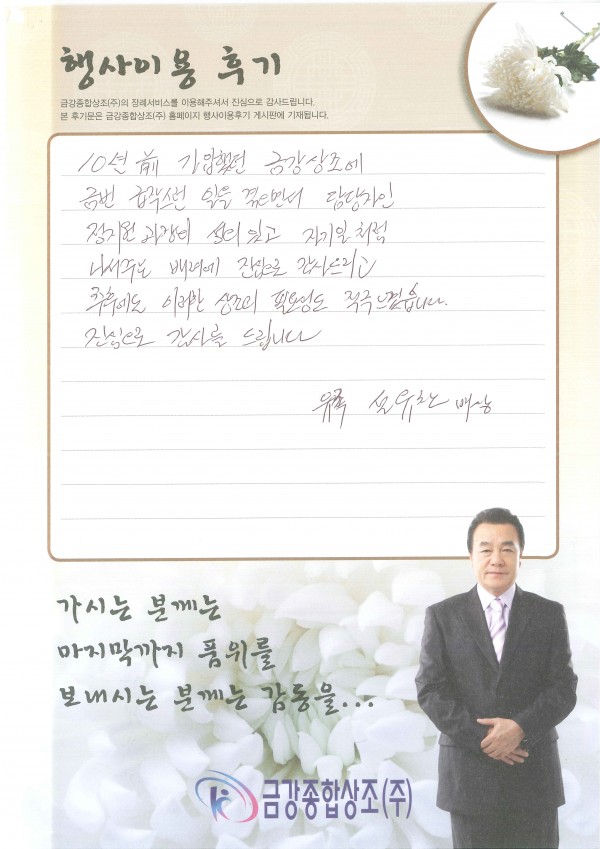 행사이용 후기
금강종합상조(주)의 장례서비스를 이용해주셔서 진심으로 감사드립니다.
본 후기문은 금강종합상조(주) 홈페이지 행사이용후기 게시판에 기재됩니다.
10년 前 가입했던 금강상조에
금번 갑작스런 일을 겪으면서 담당자인
정지원 과장의 성의 있고 자기일처럼
나서주는 배려에 진심으로 감사드리고
추후에도 이러한 상조의 필요성도 적극 느꼈습니다.
진심으로 감사를 드립니다
유족 배상
가시는 분께는
마지막까지 품위를
보내시는 분께는 감동을...
금강종합상조(주)